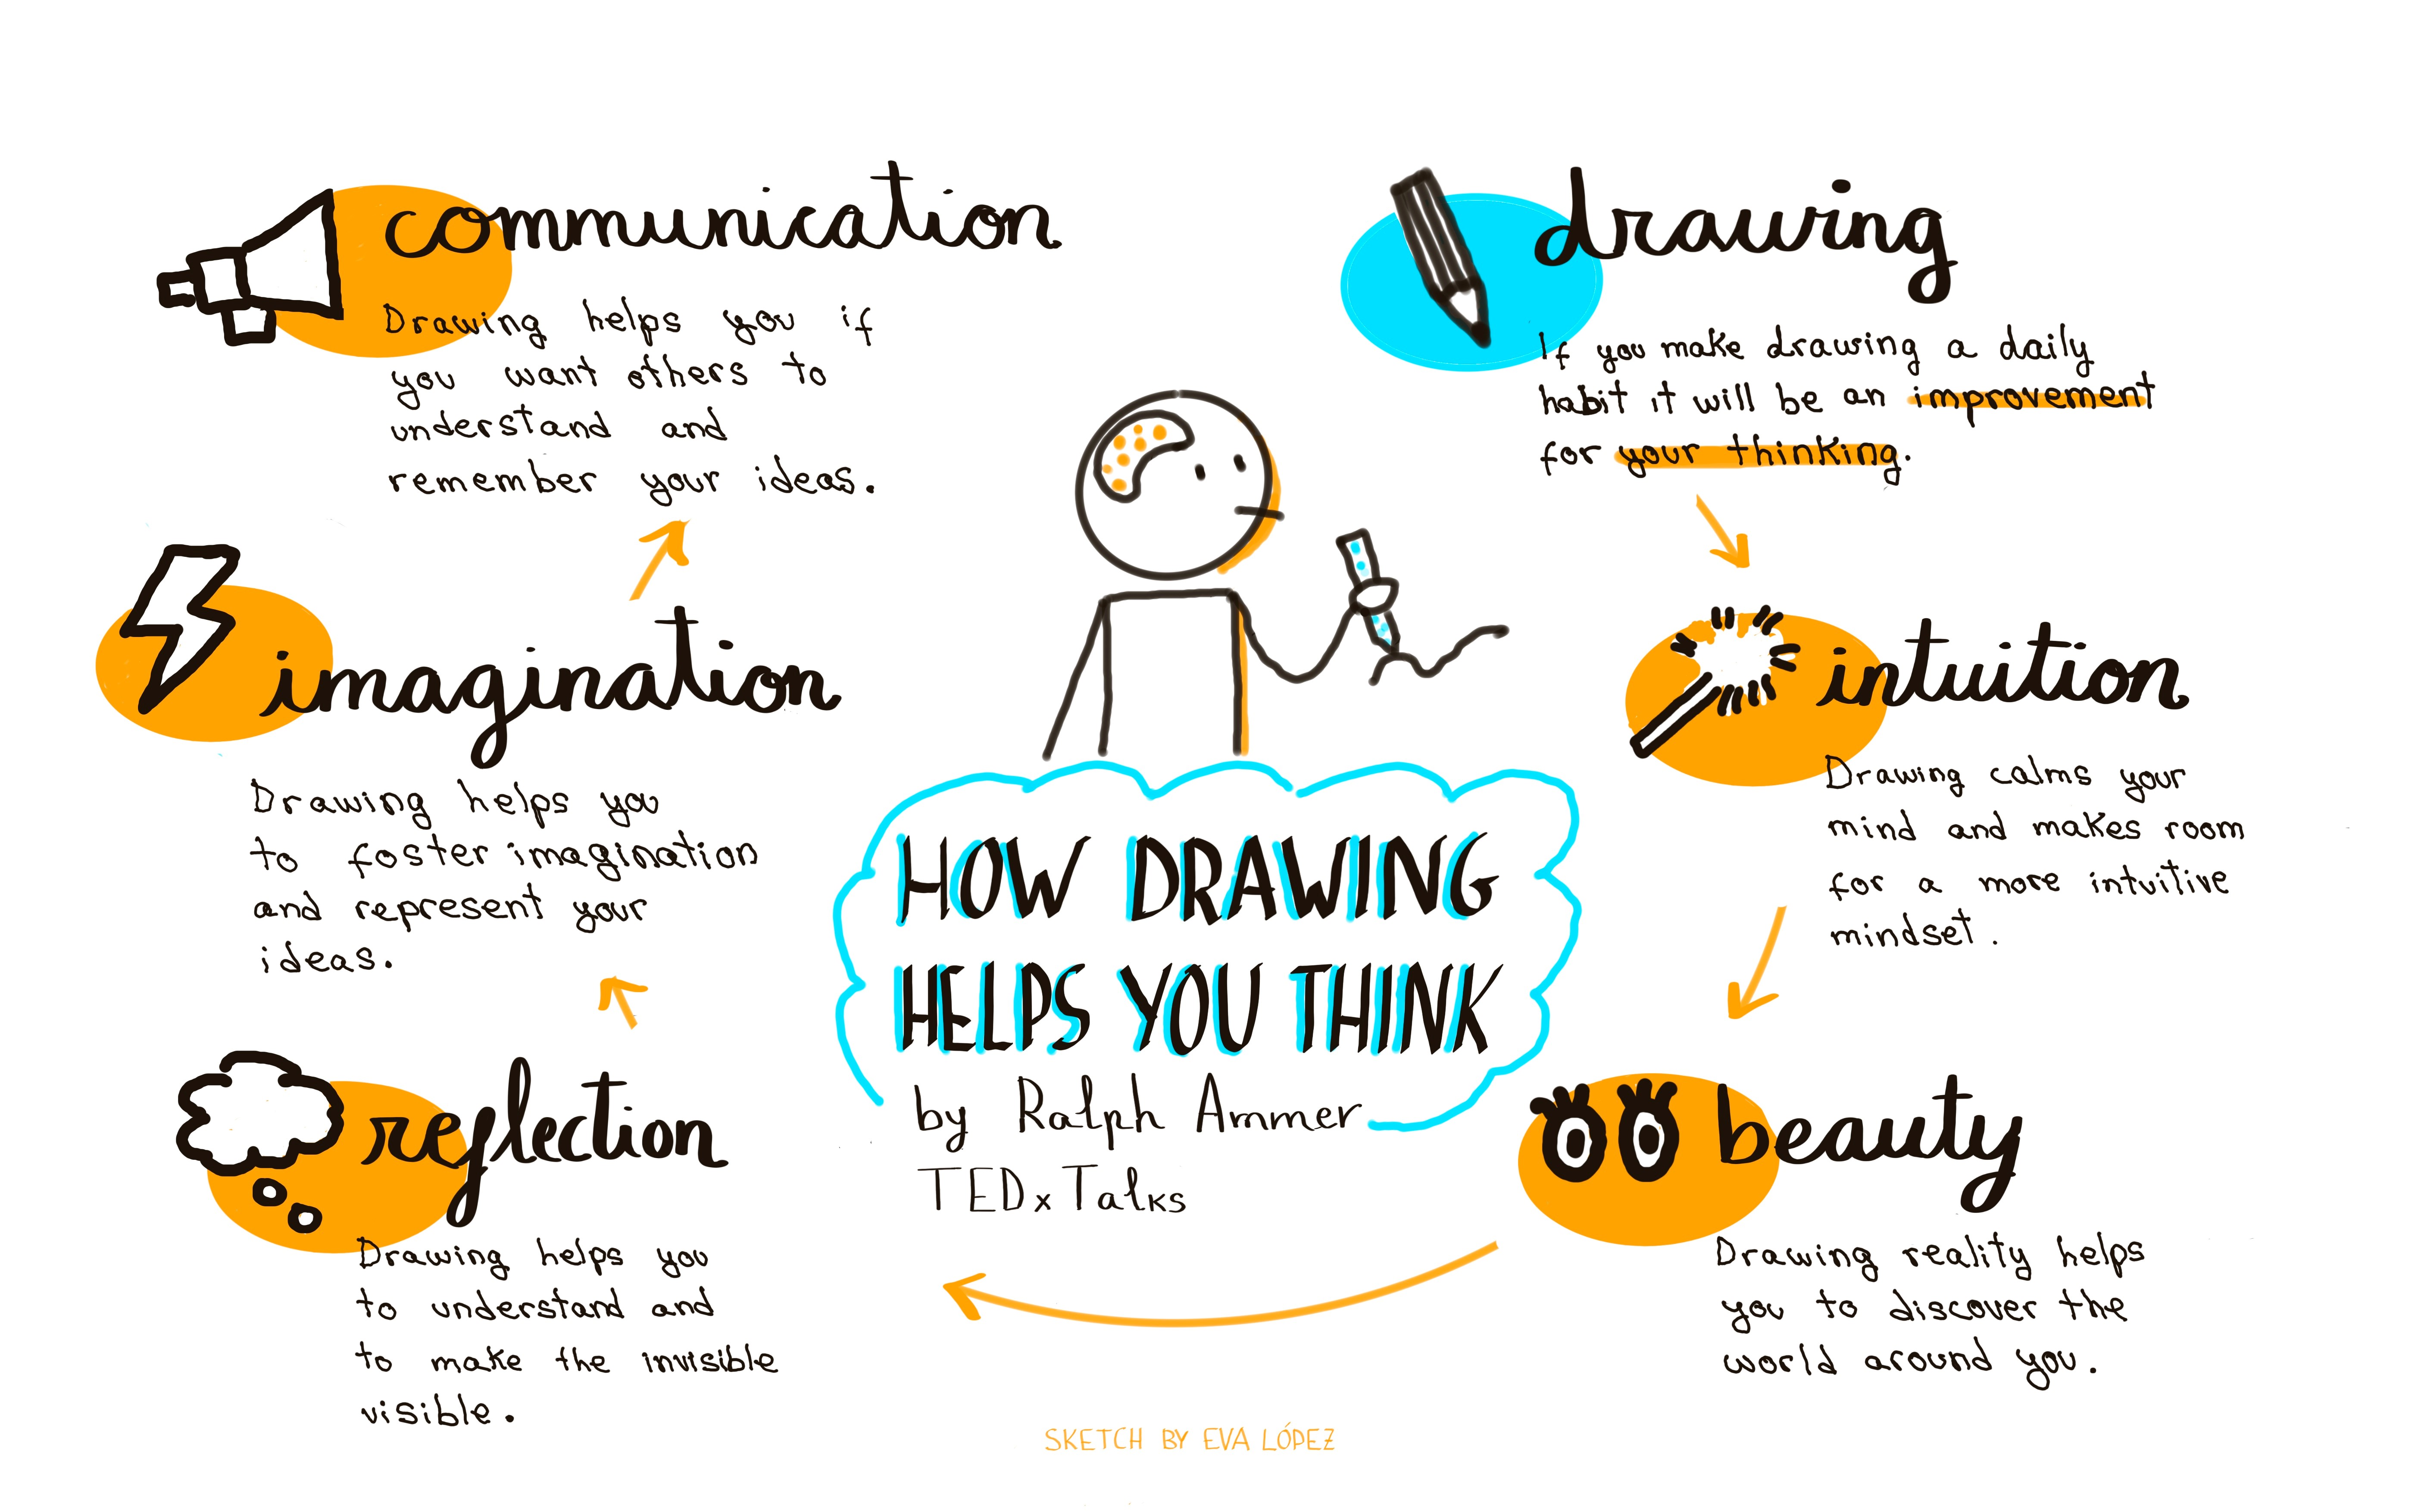 drawing
If you make drawing a daily
habit it will be an improvement
for your thinking.
intuition
Drawing calms your
mind and makes room
for a more intuitive
mindset.
beauty
Drawing reality helps
you to discover the
world around you.
reflection
Drawing helps you
to understand and
to make the invisible
visible.
imagination
Drawing helps you
to foster imagination
and represent your
ideas.
communication
Drawing helps you if
you want others to
understand and
remember your ideas.
HOW DRAWING
HELPS YOU THINK
by Ralph Ammer
TEDx Talks
SKETCH BY EVA LÓPEZ